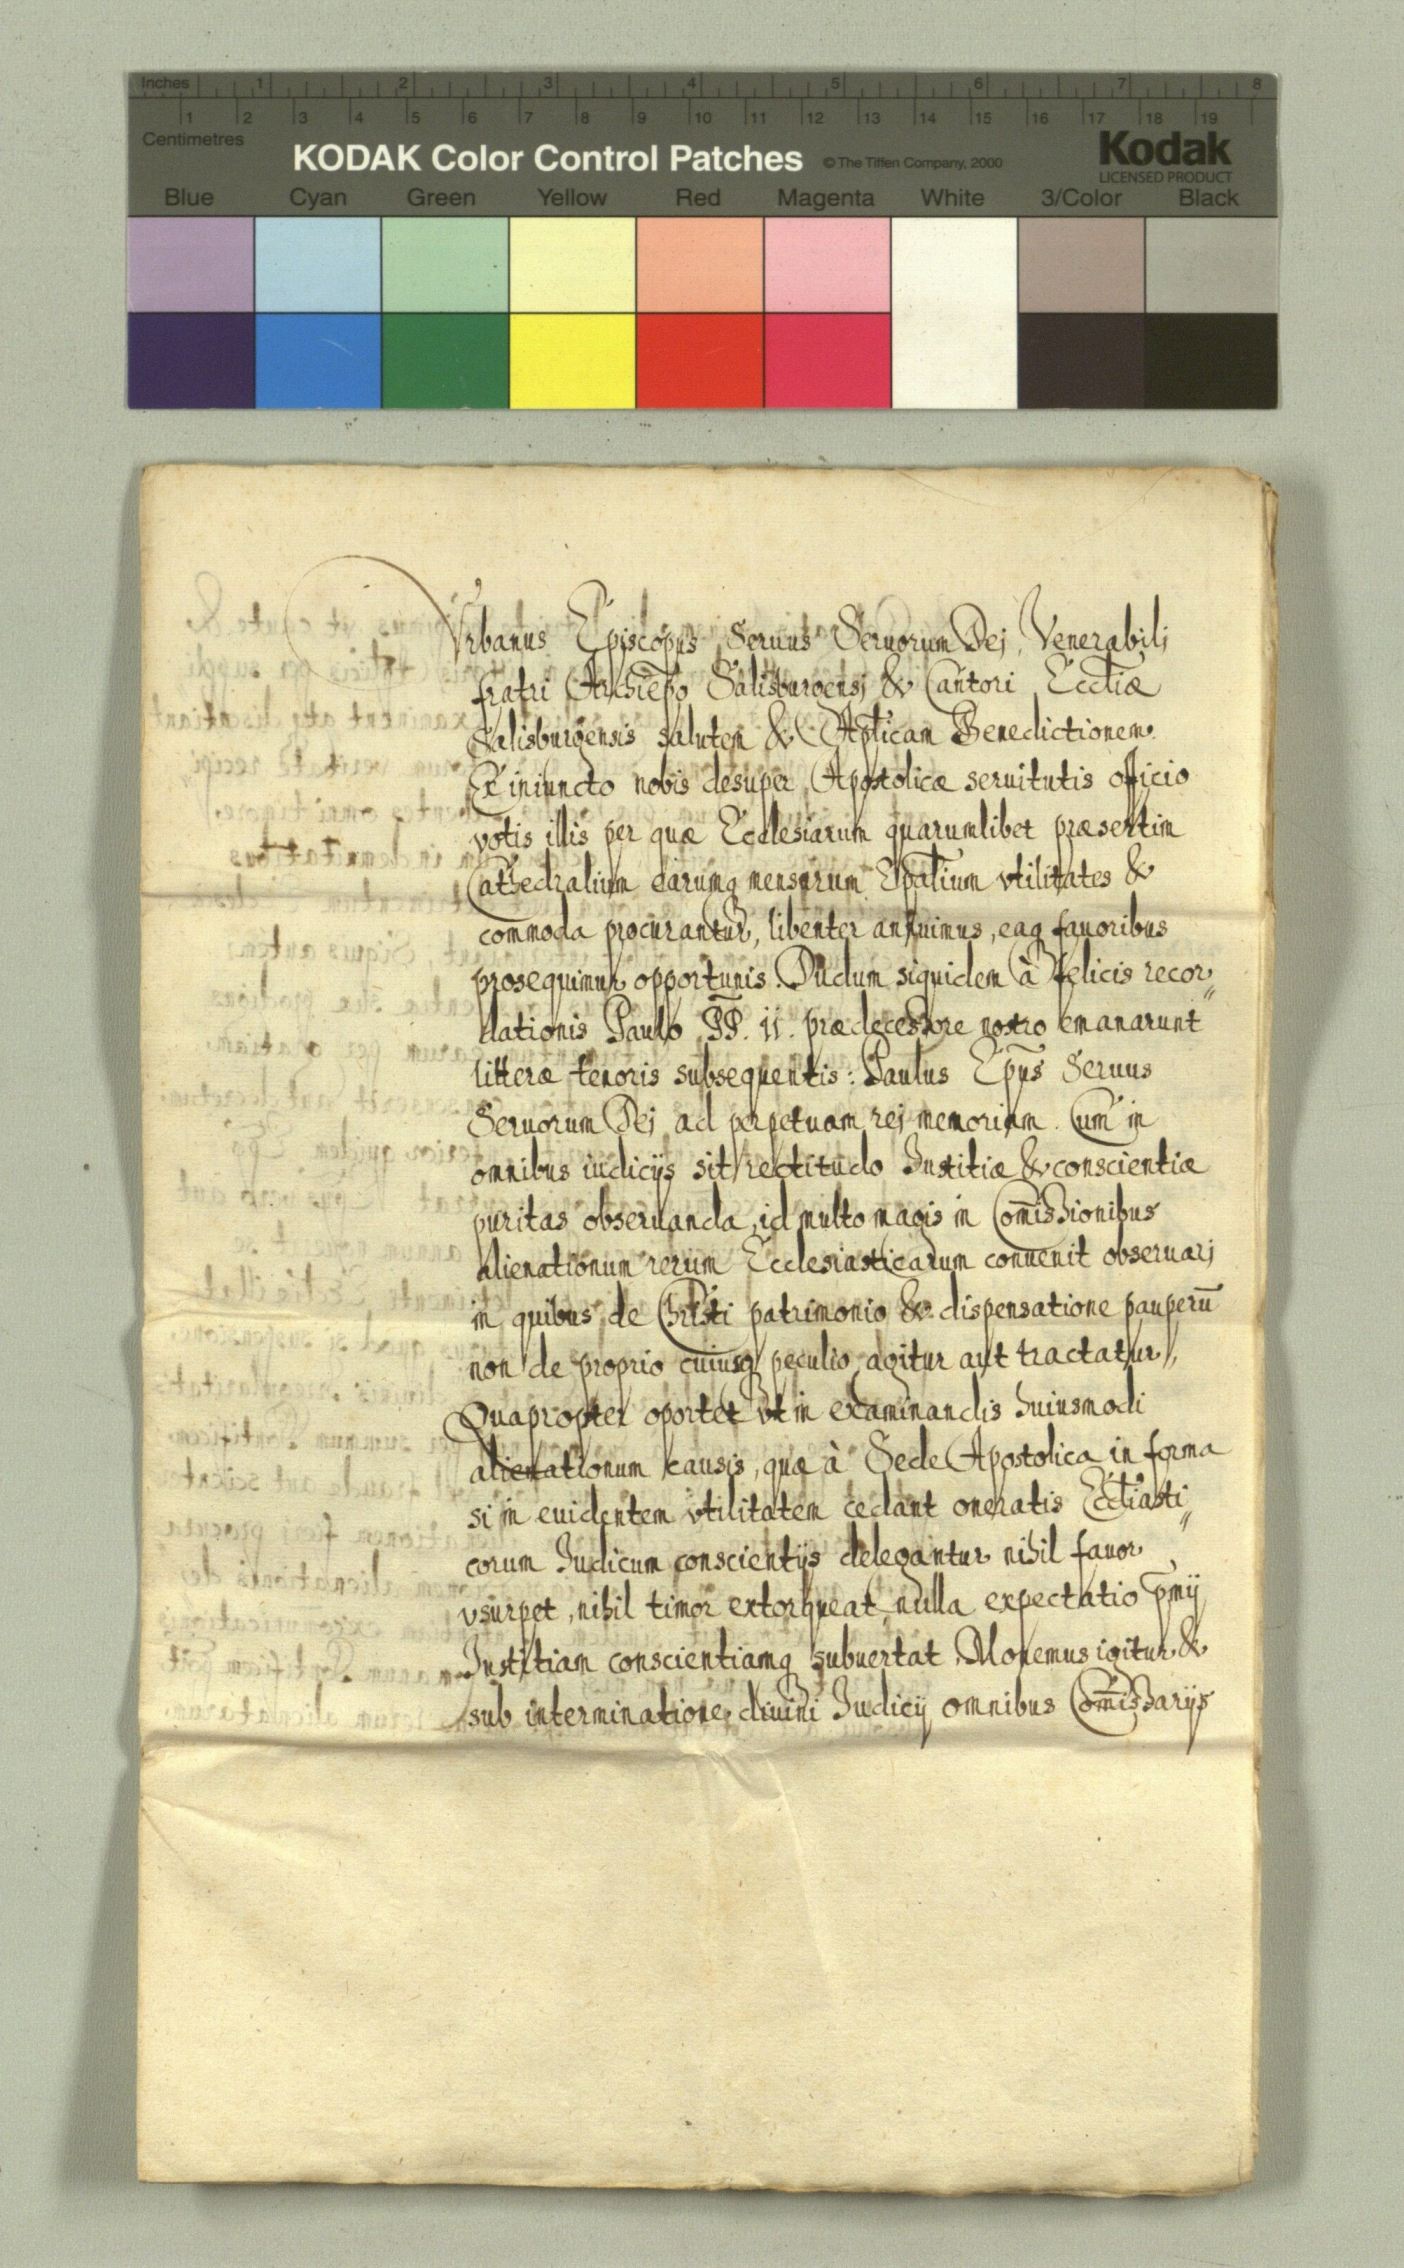 Inches 1 2 3 4 5 6 7 8
1 2 3 4 5 6 7 8 9 10 11 12 13 14 15 16 17 18 19
Centimetres
KODAK Color Control Patches © The Tiffen Company, 2000 Kodak
LICENSED PRODUCT
Blue Cyan Green Yellow Red Magenta White 3/Color Black
Vrbanus Episcopus Seruus Seruorum Dej, Venerabilj
fratri Archiepo Salisburgensj & Cantori Eccliæ
Salisburgensis salutem & Aplicam Benedictionem.
Ex iniuncto nobis desuper Apostolicæ seruitutis officio
votis illis per quæ Ecclesiarum quarumlibet præsertim
Cathedralium earumq mensarum Epalium vtilitates &
commoda procurantur, libenter annuimus, eaq fauoribus
prosequimur opportunis. Dudum siquidem à felicis recor„
dationis Paulo PP. II. prædecessore nostro emanarunt
litteræ tenoris subsequentis: Paulus Epus Seruus
Seruorum Dej ad perpetuam rej memoriam. Cum in
omnibus iudicijs sit rectitudo Iustitiæ & conscientiæ
puritas obseruanda, id multo magis in Comissionibus
alienationum rerum Ecclesiasticarum conuenit obseruarj
in quibus de Christi patrimonio & dispensatione pauperū
non de proprio cuiusq peculio agitur aut tractatur„
Quapropter oportet vt in examinandis huiusmodi
alienationum causis, quæ à Sede Apostolica in forma
si in euidentem vtilitatem cedant oneratis Eccliasti„
corum Iudicum conscientijs delegantur nihil fauor
vsurpet, nihil timor extorqueat, nulla expectatio p̄mij
Iustitiam conscientiamq subuertat Monemus igitur &
sub interminatione diuini Iudicij omnibus Comissarijs